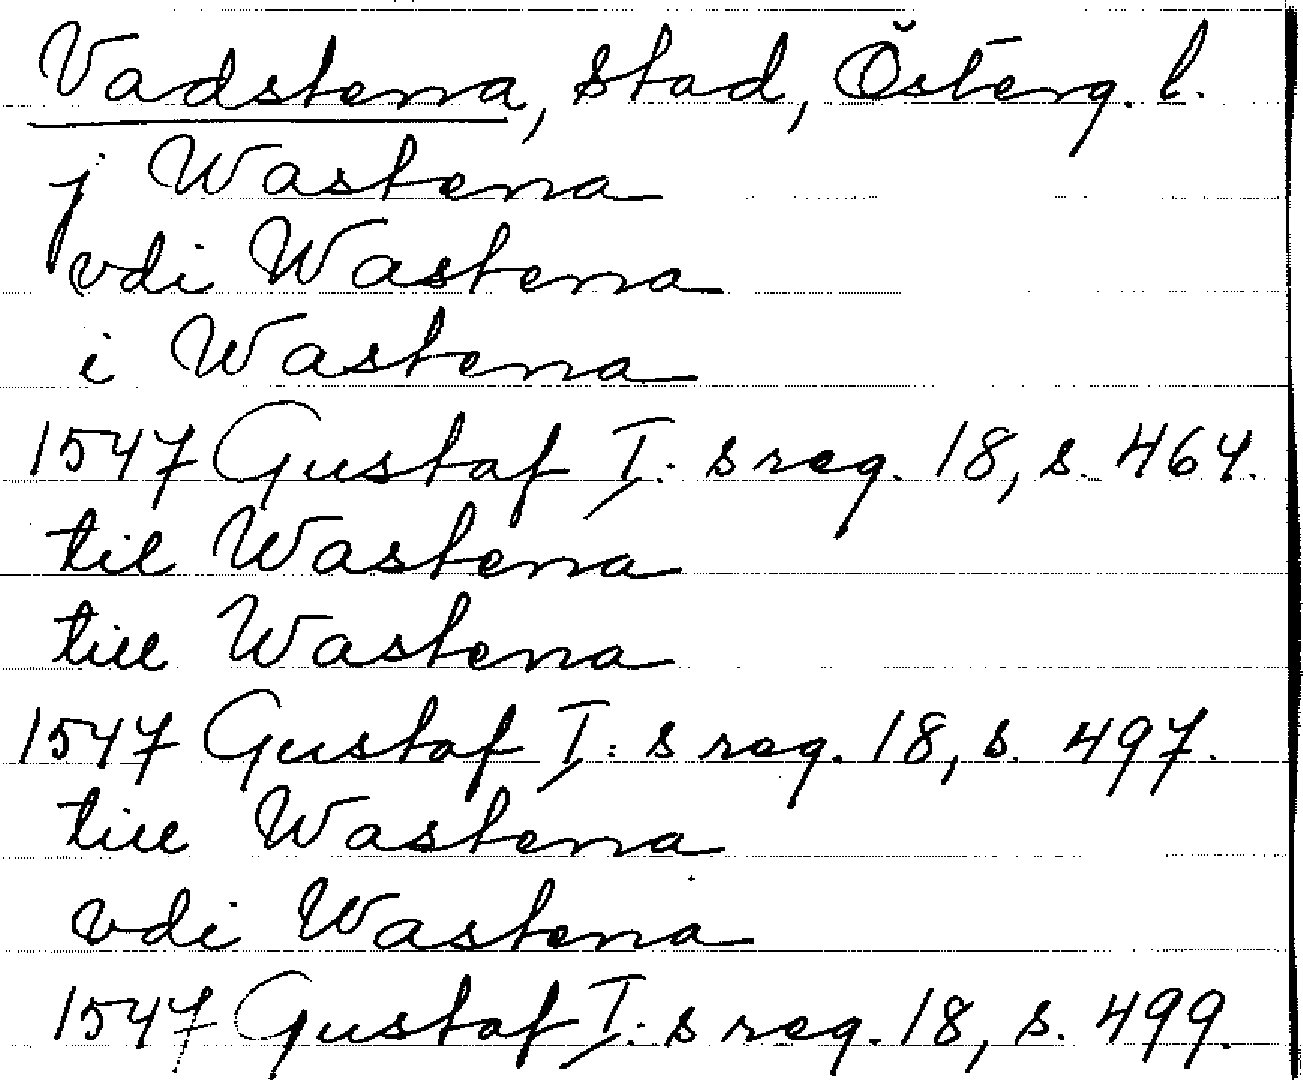 Vadstena, stad, Österg. l.
j Wastena
vdi Wastena
i Wastena
1547 Gustaf I:s reg. 18, s. 464.
til Wastena
till Wastena
1547 Gustaf I:s reg. 18, s. 497.
till Wastena
vdi Wastena
1547 Gustaf I:s reg. 18, s. 499.